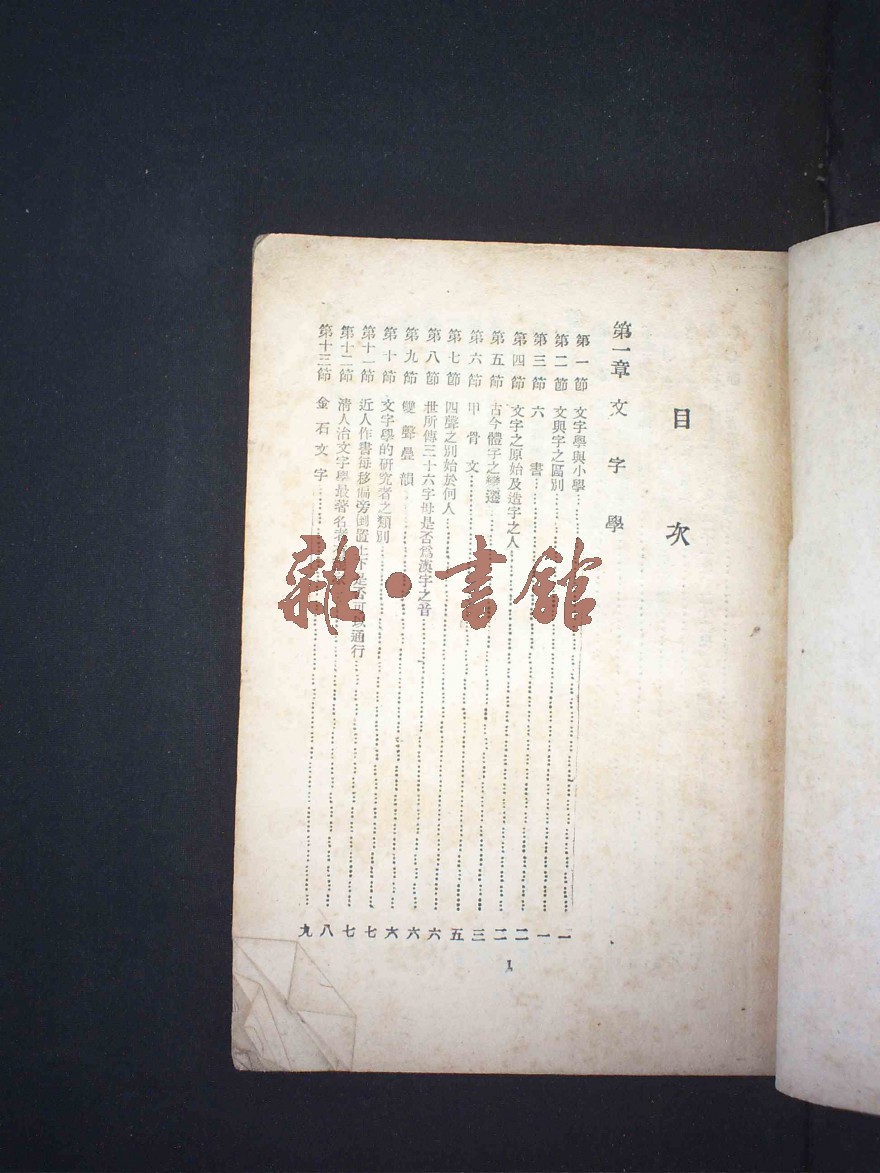 目次
第一章 文字學
第一節 文字學與小學……一
第二節 文與字之區別……一
第三節 六書……二
第四節 文字之原始及造字之人……二
第五節 古今體字之變遷……三
第六節 甲骨文……五
第七節 四聲之別始於何人……六
第八節 世所傳三十六字母是否爲漢字之音……六
第九節 雙聲疊韻……六
第十節 文字學的研究者之類別……七
第十一節 近人作書每移偏旁倒置上下是否可以通行……七
第十二節 清人治文字學最著名者……八
第十三節 金石文字……九
1
雜·書館